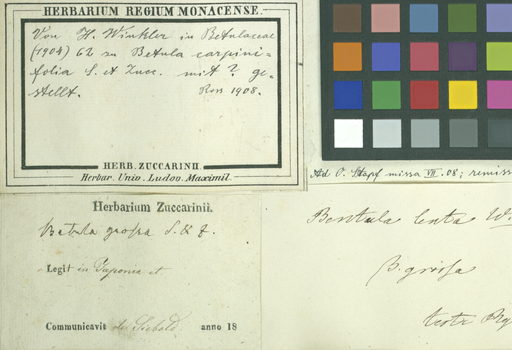 HERBARIUM REGIUM MONACENSE.
Von H. Winkler in Betulaceae
(1904) 62 zu Betula carpini-
folia S. et Zucc. mit ? ge-
stellt. Ross 1908.
HERB. ZUCCARINII
Herbar. Univ. Ludov. Maximil.
Ad O. Stapf missa VII. 08; remiss
Herbarium Zuccarinii.
Betula grossa S. & Z.
Legit in Japonia et
Communicavit de Siebold. anno 18
lenta W.
β. grossa